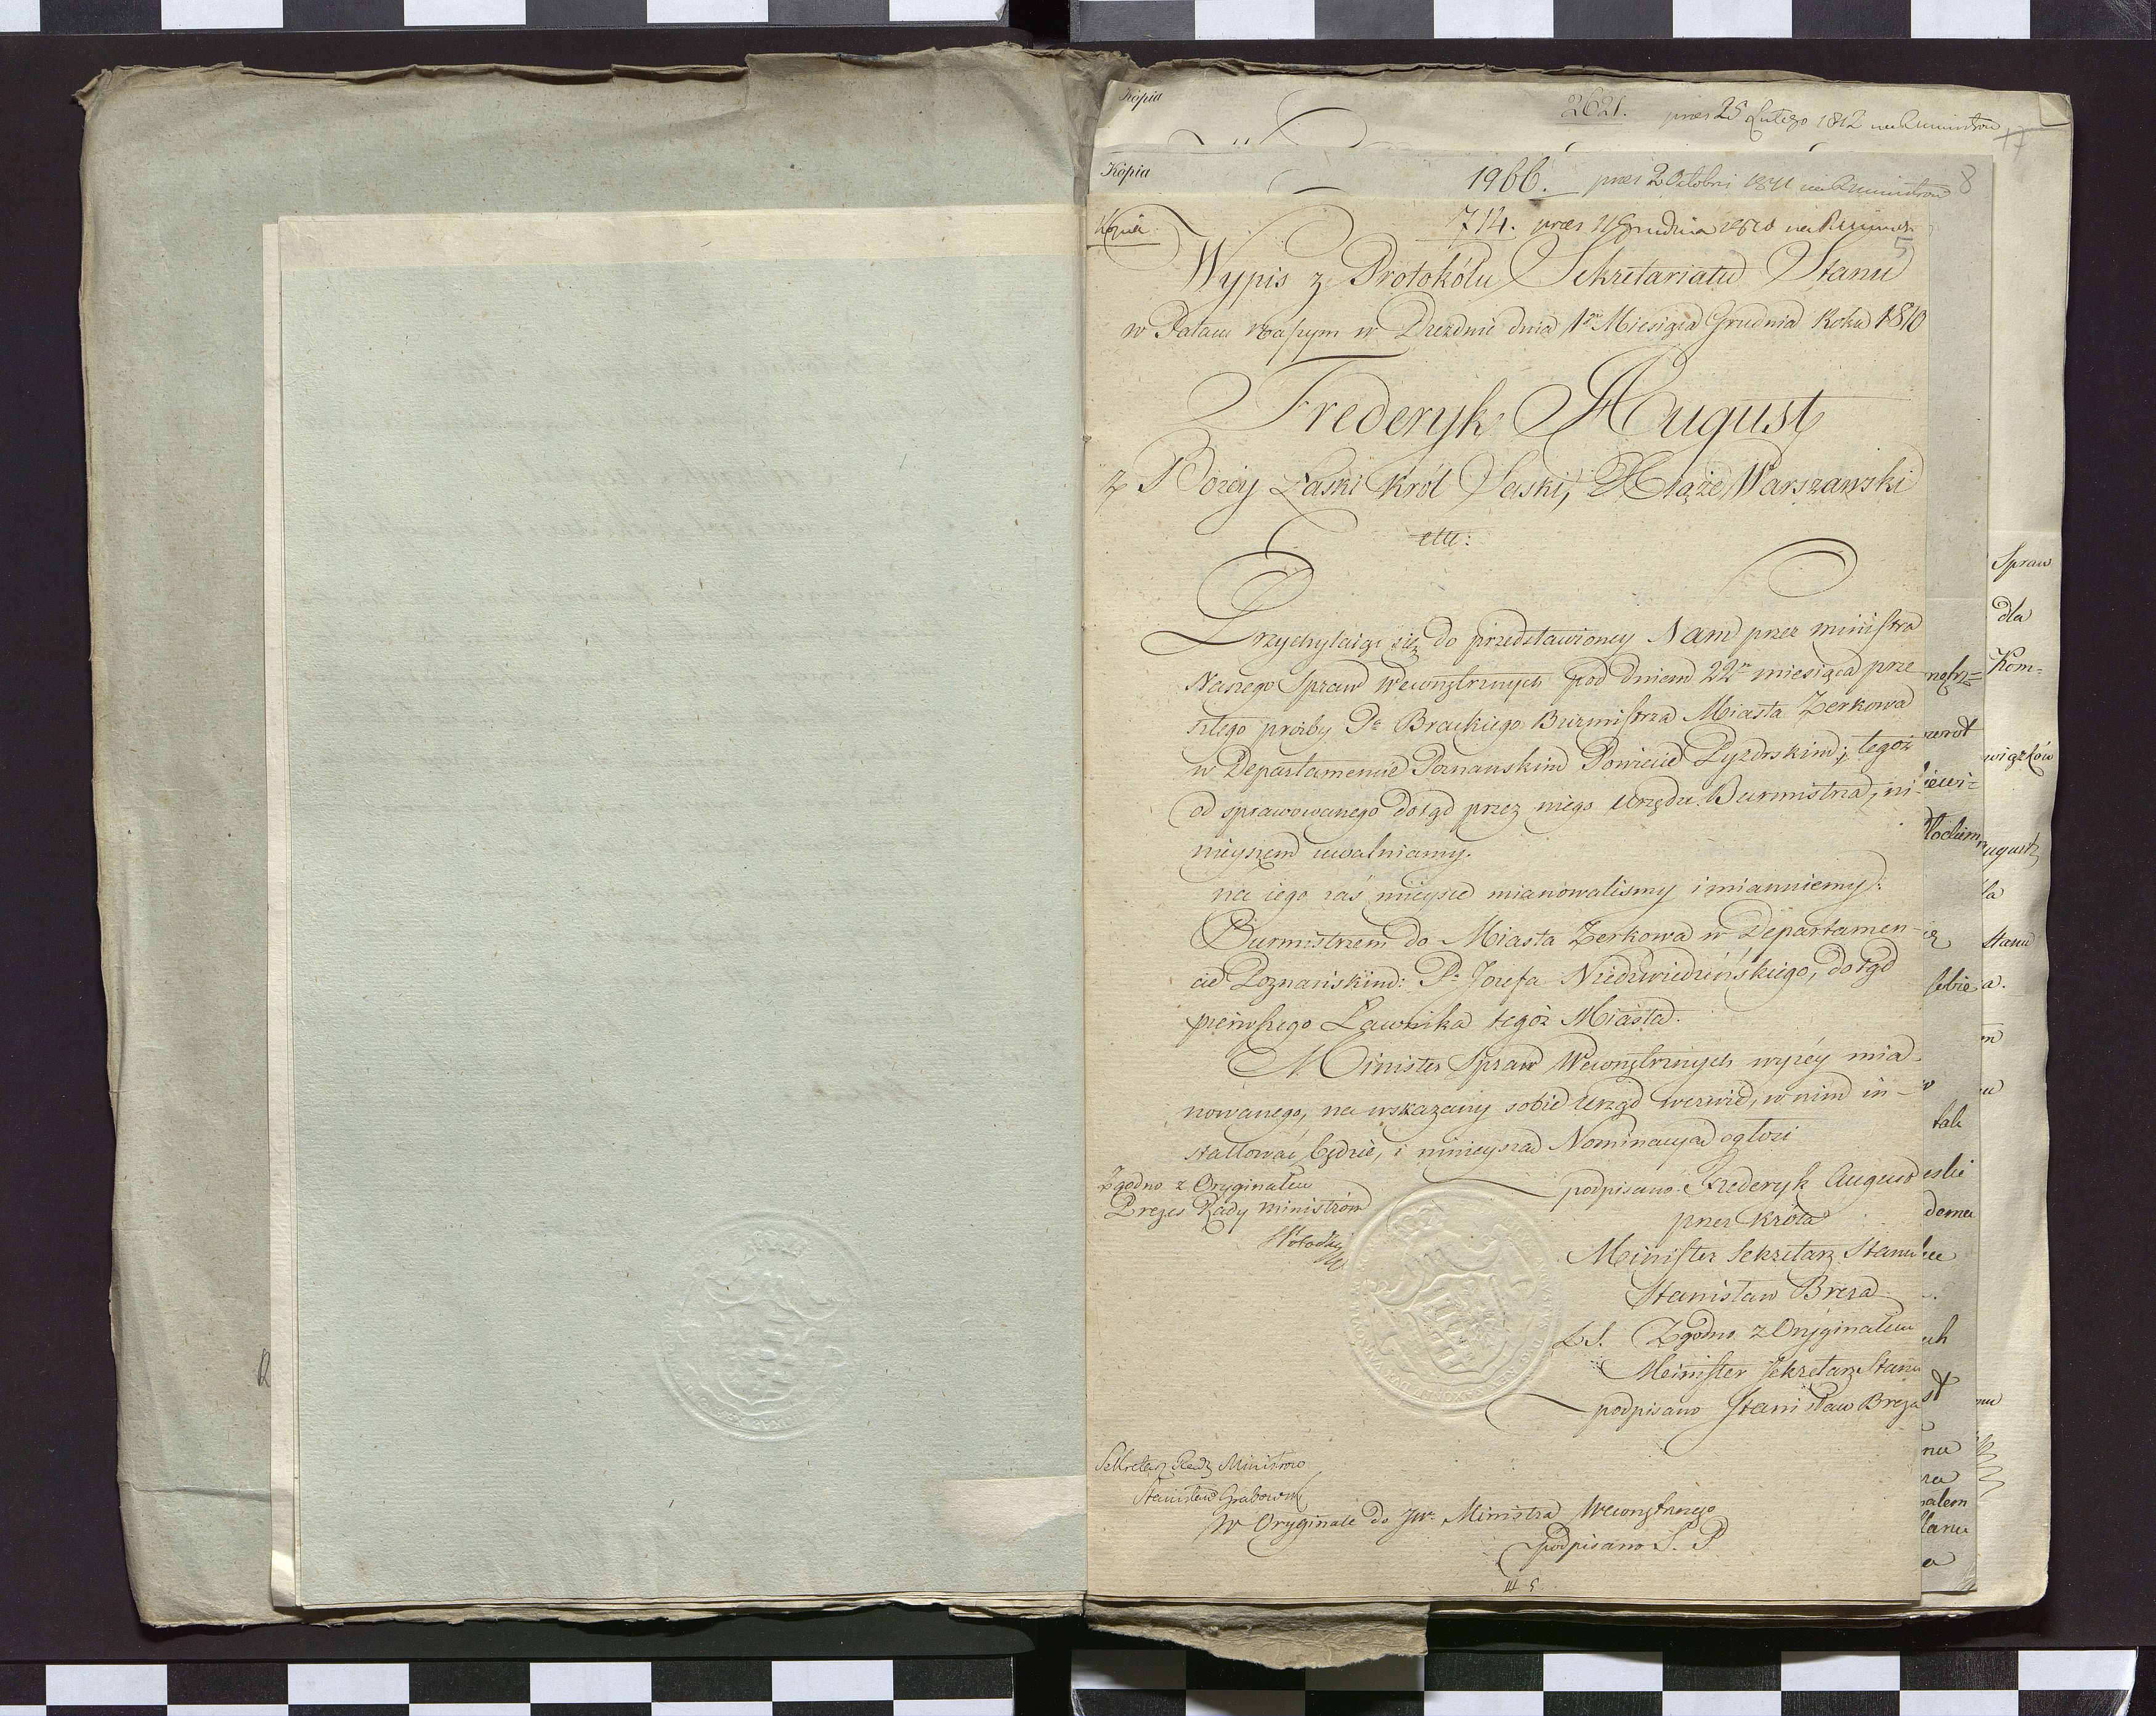 Kopia
2621. prez 25 Lutego 1812 na Ministrów
17
Kopia
1966. prez 2 Octobris 1811 na Ministrów
8
Kopia
714. prez 11 Grudnia 1810 na
5
Wypis z Protokółu Sekretariatu Stanu
w Pałacu Naszym w Dreźnie dnia 1go Miesiąca Grudnia Roku 1810
Frederyk August
z Bożéy Łaski Król Saski, Xiąże Warszawski
etc:
Przychylaiąc się do przedstawioney Nam przez ministra
Naszego Spraw Wewnętrznych pod dniem 22m miesiąca prze
szłego prozby Pa Brackiego Burmistrza Miasta Zerkowa
w Departamencie Poznanskim Powiecie Pyzdrskim; tegoż
od sprawowanego dotąd przez niego Urzędu Burmistrza, ni
nieyszem uwalniamy.
na iego zaś mieysce mianowalismy i mianuiemy:
Burmistrzem do Miasta Zerkowa w Departamen-
cie Poznańskim: Pa Jozefa Niedzwiedzińskiego, dotąd
pierwszego Ławnika tegoż Miasta.
Minister Spraw Wewnętrznych wyżéy mia-
nowanego, na wskazany sobie Urząd wezwie, w nim in-
stallować będzie, i ninieyszą Nominacyą ogłosi
Zgodno z Oryginałem
Prezes Rady ministrów
podpisano Frederyk August
przez Króla
Minister Sekretarz Stanu
Stanisław Breza
L.S. Zgodno z Oryginałem
Minister Sekretarz Stanu
podpisano Stanisław Breza
Sekretarz Rady Ministrów
Stanisław Grabowski
W Oryginale do JW. Ministra Wewnętrznego
podpisano S. P
Spraw
dla
Kom=
wiązków
stanu
sebie
tak